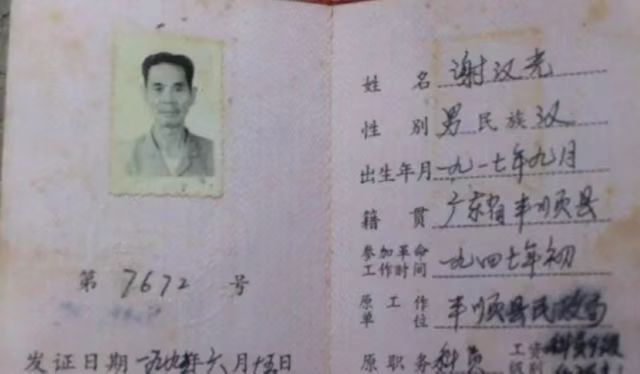 第 7672 号
发证日期 一九九〇年六月十五日
姓名 谢汉光
性别 男 民族 汉
出生年月 一九一七年九月
籍贯 广东省丰顺县
参加革命工作时间 一九四七年初
原工作单位 丰顺县民政局
原职务 科员 工资级别